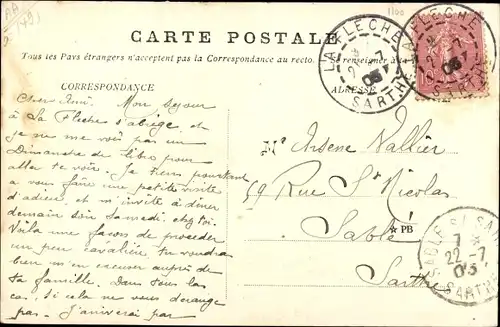 CARTE POSTALE
Tous les Pays étrangers n'acceptent pas la Correspondance au recto. (Se renseigner à
CORRESPONDANCE
ADRESSE
LA FLECHE
22-7
05
SARTHE
LA FLECHE
05
SARTHE
Cher Ami. Mon séjour
à La Flèche s'abrège et
je ne me vois pas un
Dimanche de libre pour
aller te voir. Je tiens pourtant
à vous faire une petite visite
d'adieu, et m'invite à dîner
demain soir Samedi chez toi.
Voilà une façon de procéder
un peu cavalière, tu voudras
bien m'en excuser auprès de
ta famille. Dans tous les
cas, si cela ne vous dérange
pas. J'arriverai par
Mr Arsene Vallier
59 Rue St Nicolas
Sablé
Sarthe
★ PB
SABLE S/ SARTHE
7
22-7
05
SARTHE